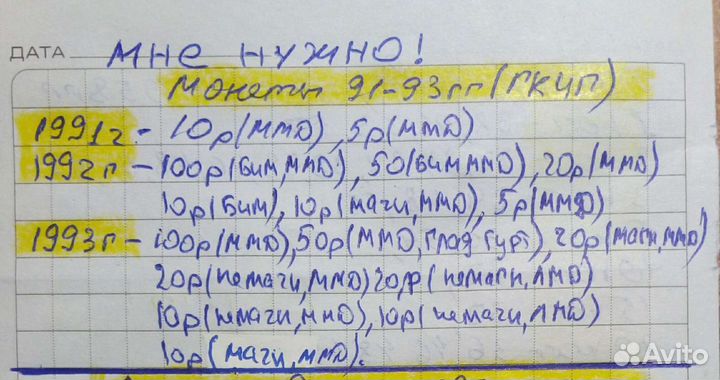 ДАТА МНЕ НУЖНО!
Монеты 91-93гг (ГКЧП)
1991г - 10р (ММД), 5р (ММД)
1992г - 100р (Бим, ММД), 50 (Бим ММД), 20р (ММД)
10р (Бим), 10р (магн, ММД), 5р (ММД)
1993г - 100р (ММД), 50р (ММД, глад гурт), 20р (магн, ММД)
20р (немагн, ММД) 20р (немагн, ЛМД)
10р (немагн, ММД), 10р (немагн, ЛМД)
10р (магн, ММД).
Avito